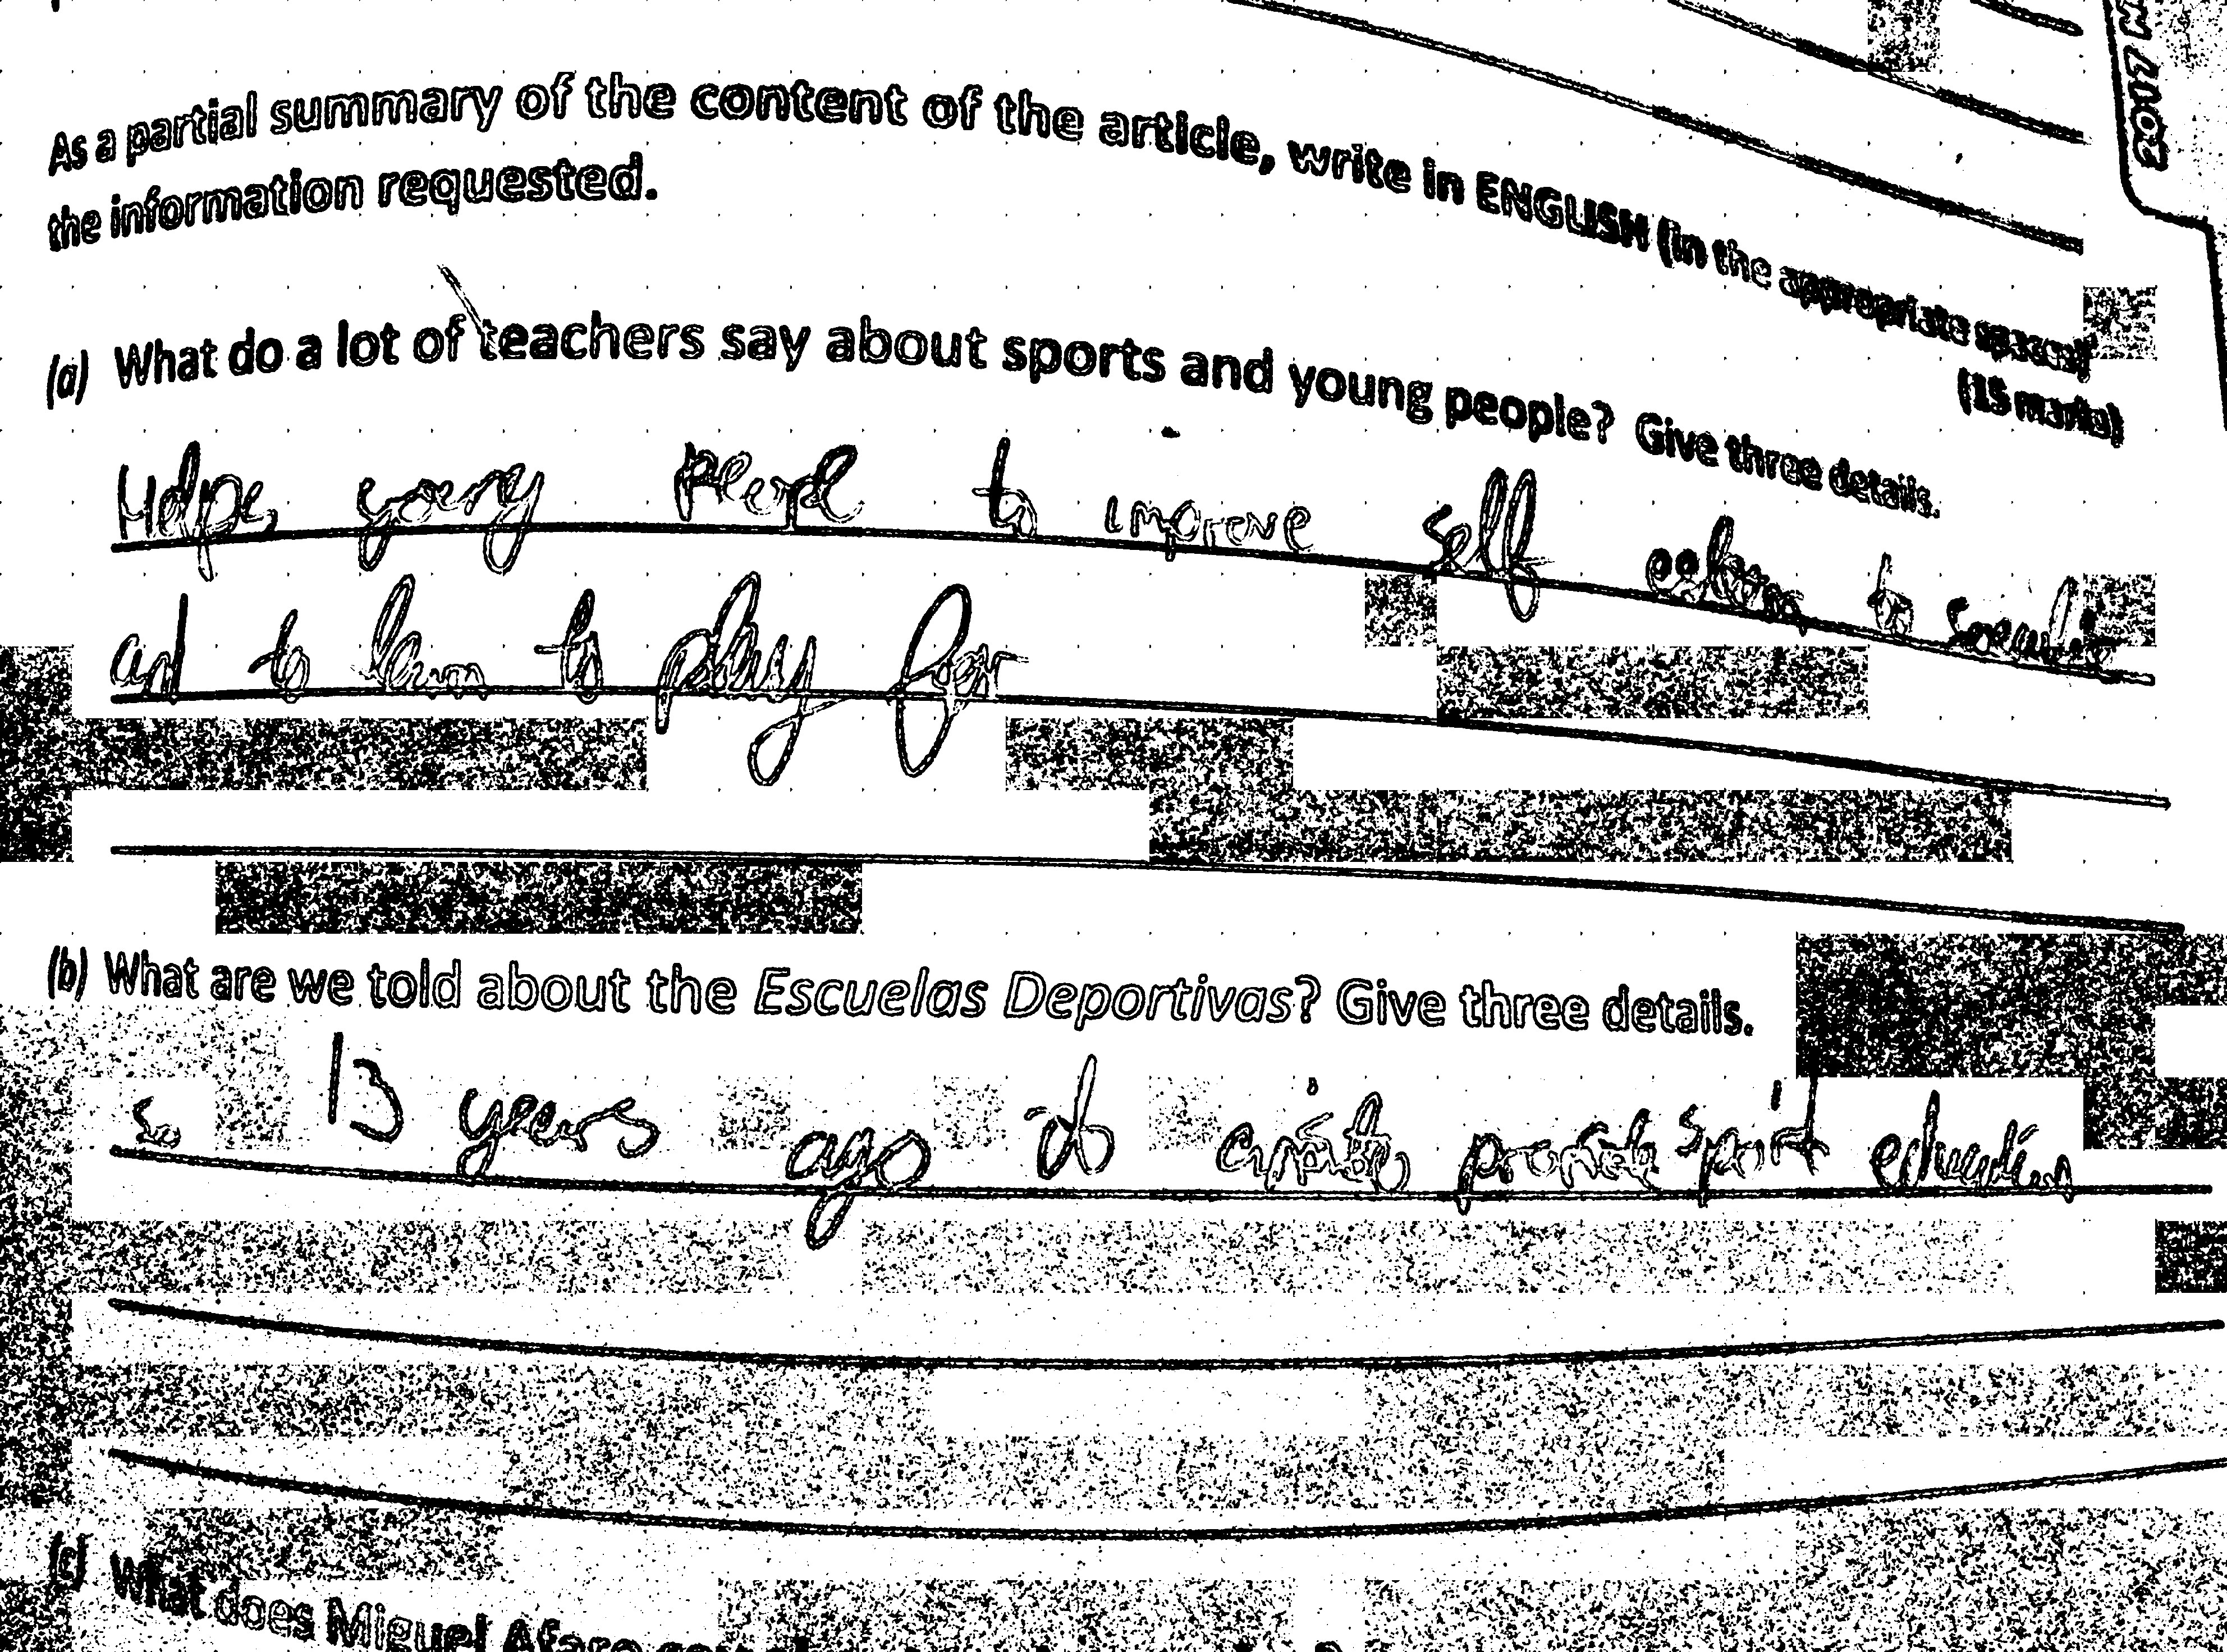 2017 M
As a partial summary of the content of the article, write in ENGLISH (in the appropriate space)
the information requested.
(15 marks)
(a) What do a lot of teachers say about sports and young people? Give three details.
Helps young people to improve self esteem to socialise
and to learn to play fair
(b) What are we told about the Escuelas Deportivas? Give three details.
so 13 years ago provide sport education
(c) What does Miguel Afaro say